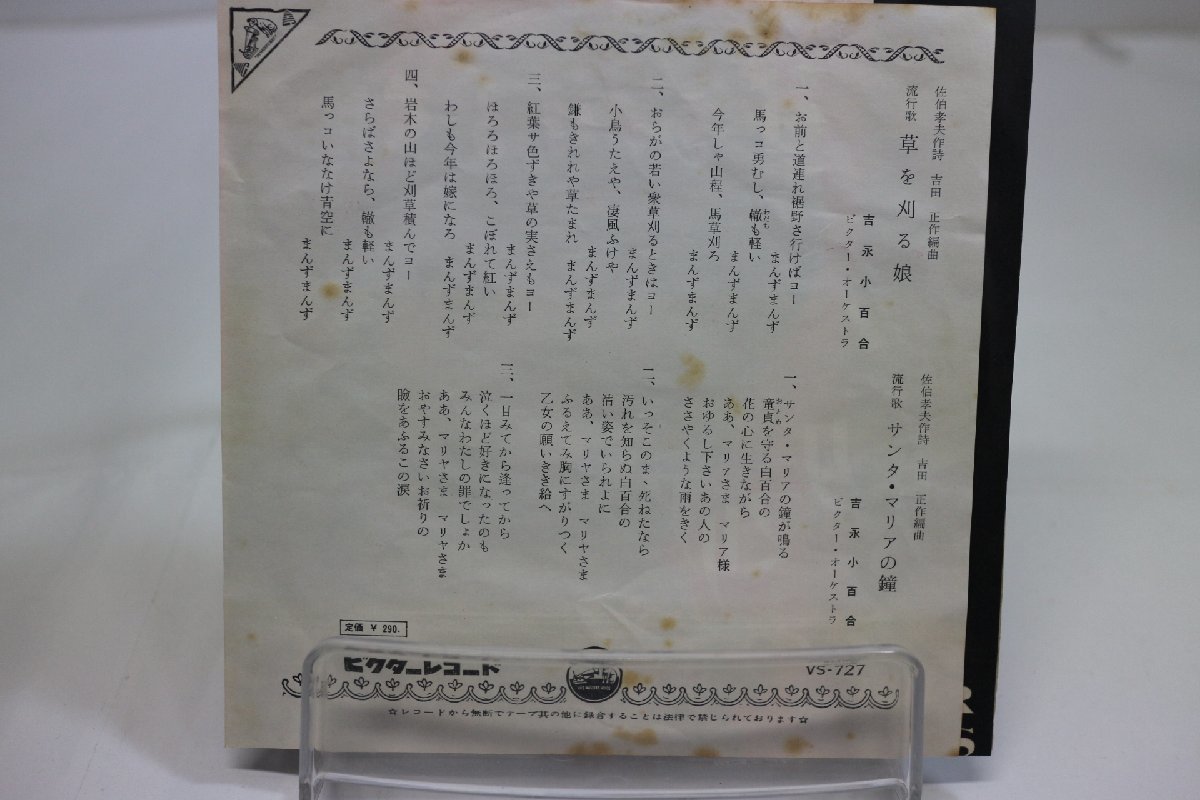 佐伯孝夫作詩 吉田 正作編曲
流行歌 草を刈る娘
吉永小百合
ビクター・オーケストラ
一、お前と道連れ裾野さ行けばコー
まんずまんず
馬っコ勇むし、轍も軽い
まんずまんず
今年しゃ山程、馬草刈ろ
まんずまんず
二、おらがの若い衆草刈るときはコー
まんずまんず
小鳥うたえや、凄風ふけや
まんずまんず
鎌もきれれや草たまれ まんずまんず
三、紅葉サ色ずきや草の実さえもコー
まんずまんず
ほろろほろほろ、こぼれて紅い
まんずまんず
わしも今年は嫁になろ まんずまんず
四、岩木の山ほど刈草積んでコー
まんずまんず
さらばさよなら、轍も軽い
まんずまんず
馬っコいななけ青空に
まんずまんず
佐伯孝夫作詩 吉田 正作編曲
流行歌 サンタ・マリアの鐘
吉永小百合
ビクター・オーケストラ
一、サンタ・マリアの鐘が鳴る
童貞を守る白百合の
花の心に生きながら
ああ、マリアさま マリア様
おゆるし下さいあの人の
ささやくような雨をきく
二、いっそこのまゝ死ねたなら
汚れを知らぬ白百合の
清い姿でいられよに
ああ、マリヤさま マリヤさま
ふるえてみ胸にすがりつく
乙女の願いきき給へ
三、一目みてから逢ってから
泣くほど好きになったのも
みんなわたしの罪でしょか
ああ、マリヤさま マリヤさま
おやすみなさいお祈りの
瞼をあふるこの涙
定価 ¥ 290.
ビクターレコード
VS-727
☆レコードから無断でテープ其の他に録音することは法律で禁じられております☆